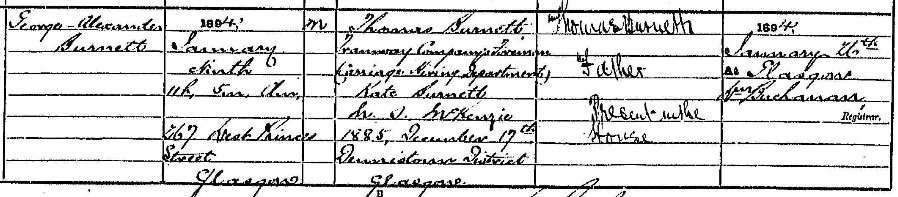 George Alexander
Burnett
1894,
January
Ninth
11h, 5m, A.M.
267 West Princes
Street
Glasgow
M
Thomas Burnett
Tramway Company's Foreman
(Carriage Hiring Department)
Kate Burnett
M. S. McKenzie
1885, December 17th
Dennistoun District
Glasgow
Thomas Burnett
Father
Present in the
House
1894,
January 26th
At Glasgow
Buchanan,
Registrar.